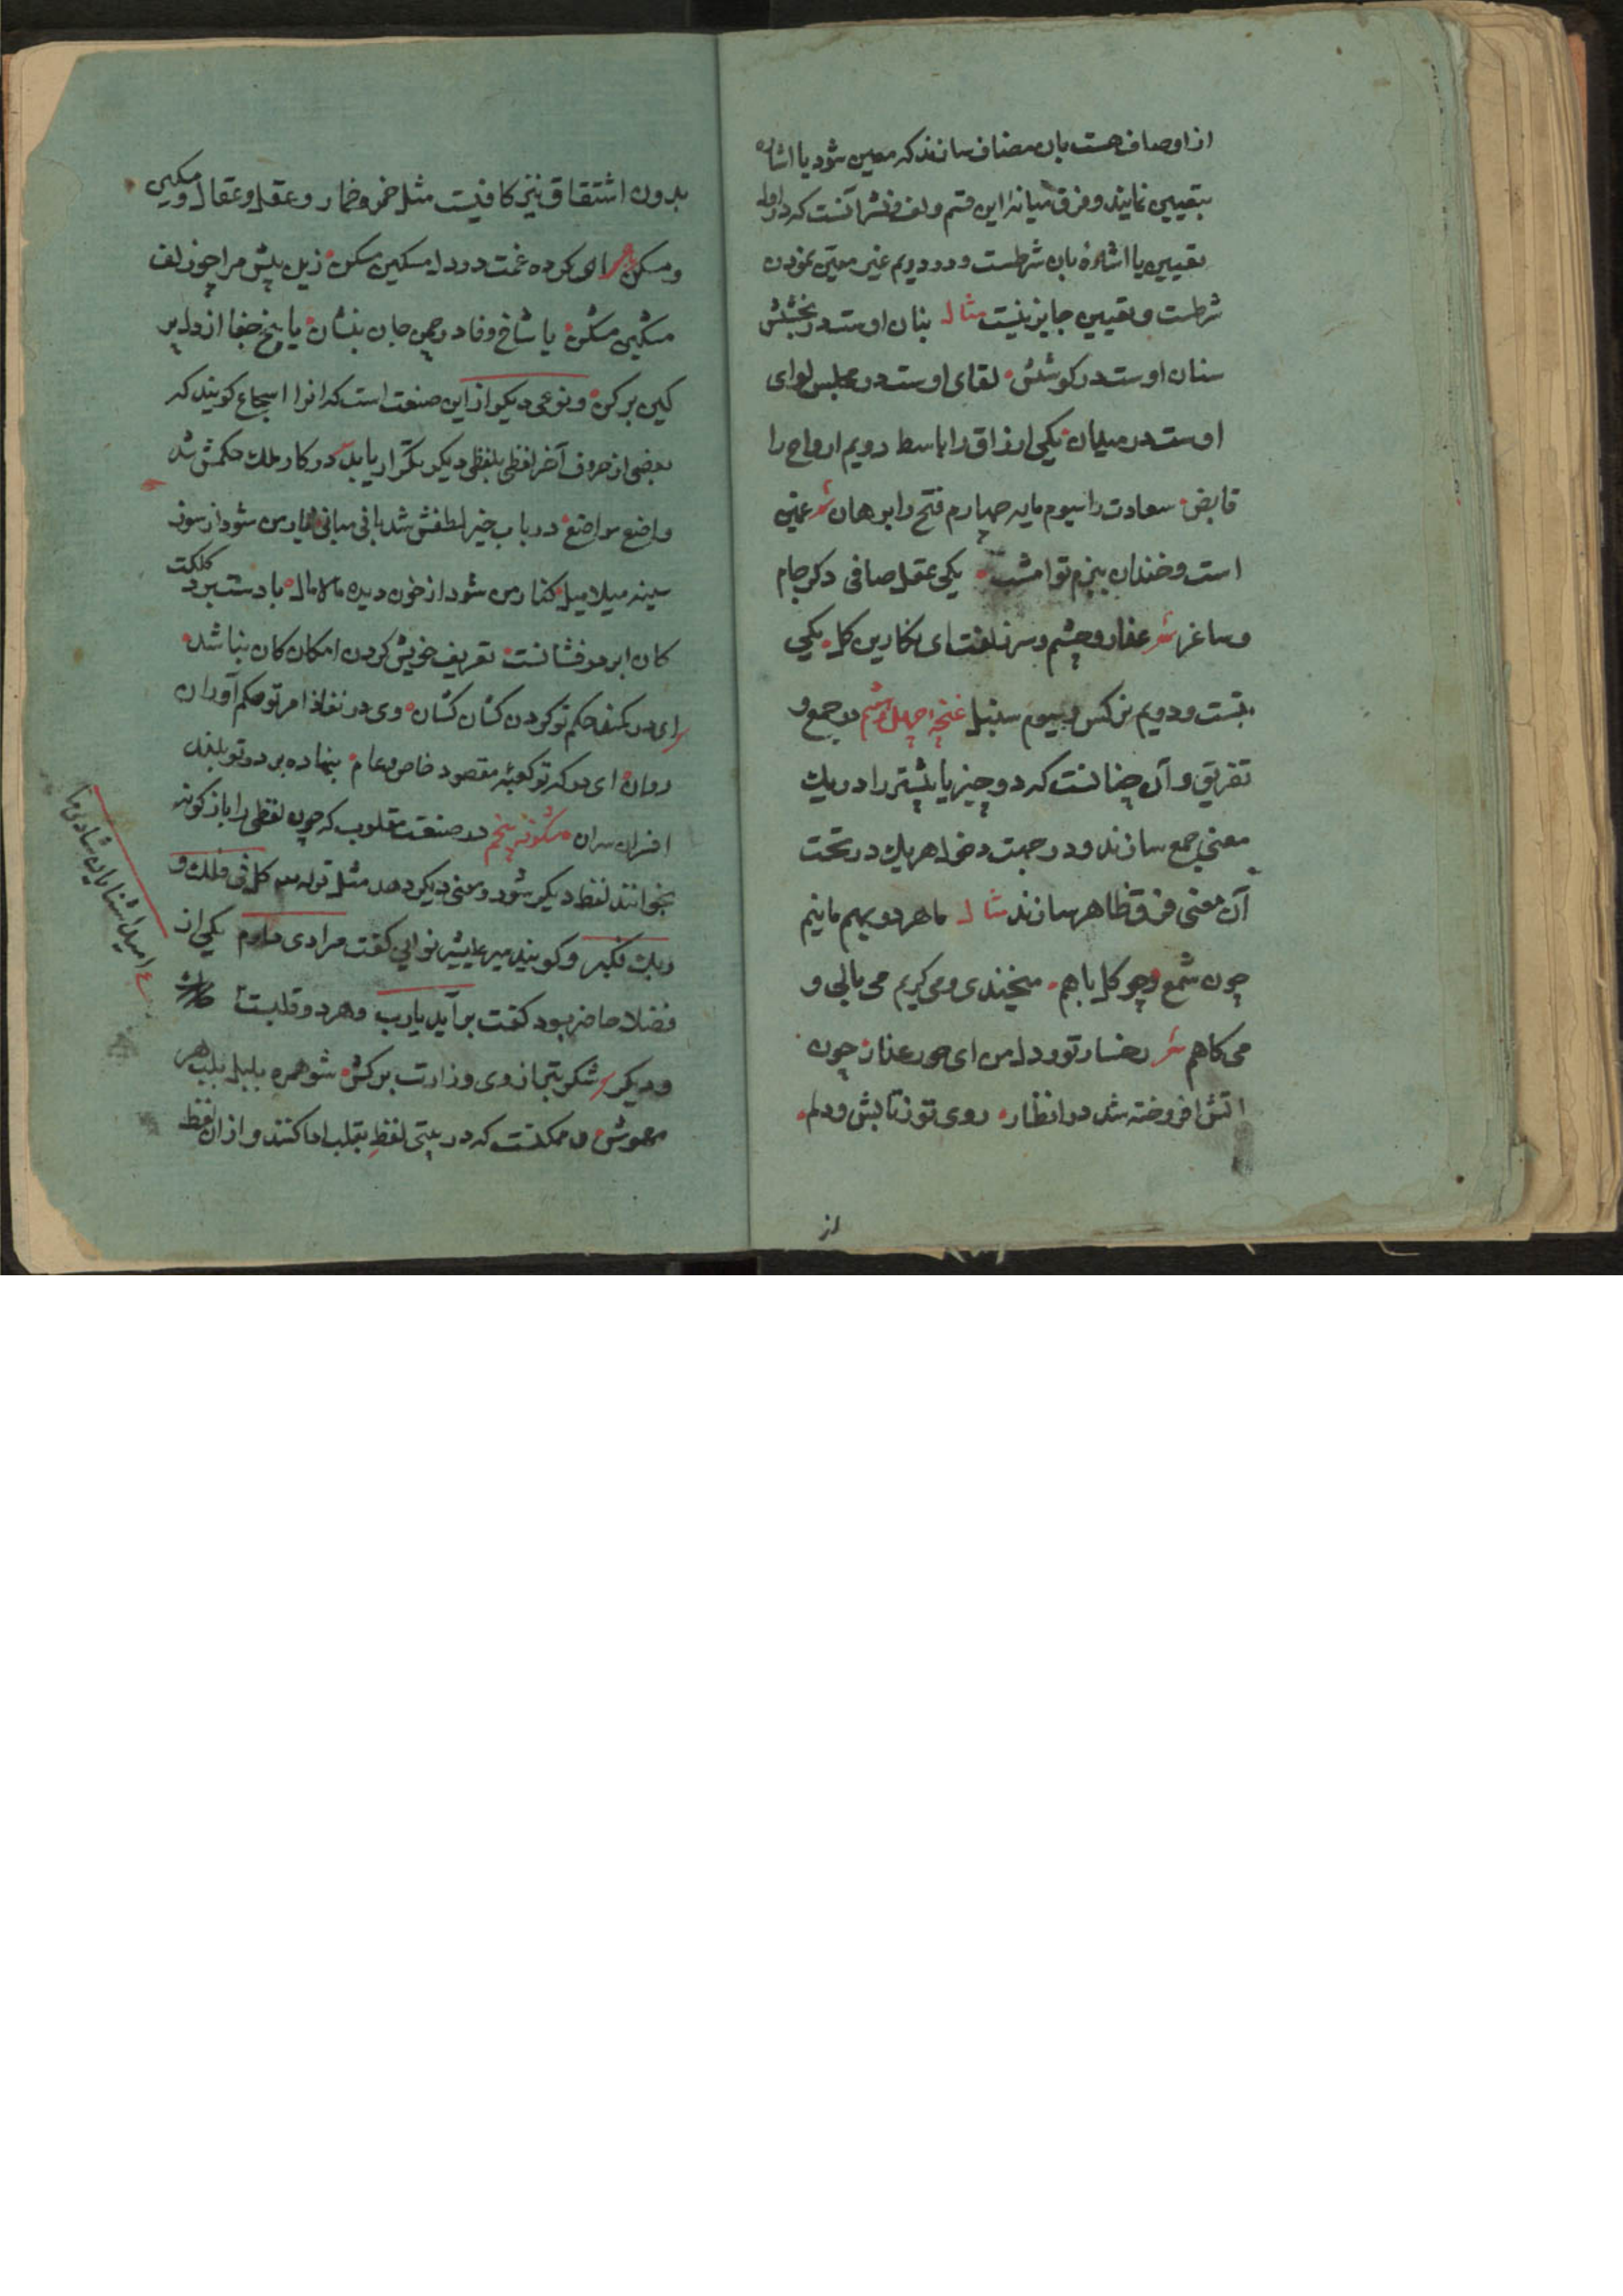 از اوصاف هست بان مضاف سازند که معین شود یا اشاره
بتعیین نمایند و فرق میانه این قسم و لف و نشر آنست که در اول
تعیین یا اشاره بان شرطست و در دویم غیر معین نمودن
شرطست و تعیین جایز نیست مثال بنان اوست در بخشش
سنان اوست در کوشش لقای اوست در مجلس لوای
اوست در میدان یکی ارزاق را باسط دویم ارواح را
قابض سعادت را سیوم مایه چهارم فتح را برهان شعر غمین
است و خندان ببزم تو امشب یکی عقل صافی دکر جام
و ساغر شعر عذار و چشم و سر زلفت ای نکارین کل یکی
بتست و دویم نرکس و سیوم سنبل غنچه چهل و ششم در جمع و
تفریق و آن چنانست که دو چیز یا بیشتر را در یک
معنی جمع سازند و در جهت دخول هر یک در تحت
آن معنی فرق ظاهر سازند مثال ما هر دو بهم ماییم
چون شمع و چو کل با هم میخندی و می کریم می بالی و
می کاهم شعر رخسار تو و دل من ای حور عذار چون
اتش افروخته شد در انظار روی تو ز تابش و دلم
از
بدون اشتقاق نیز کافیست مثل خمر و خمار و عقل و عقال و مکین
و مسکن شعر ای کرده غمت در دل مسکین مسکن زین بیش مرا چو زلف
مشکین مشکن یا شاخ وفا در چمن جان بنشان یا بیخ جفا از دل پر
کین بر کن و نوعی دیکر از این صنعت است که انرا اسجاع کویند که
بعضی از حروف آخر لفظی بلفظی دیکر بتکرار یابد در کار ملک حکمش شد
واضع مواضع در باب خیر لطفش شد بانی مبانی شود از سوز
سینه میلامیل کنار من شود از خون دیده مالامال با دست برد کلکت
کان ابر در فشانست تعریف خویش کردن امکان کان نباشد
ای در کنف حکم تو کردن کشان کشان وی در نفاذ امر تو حکم آوران
روان ای در که تو کعبه مقصود خاص و عام بنهاده بر در تو بلند
افسران سران شکوفه پنجم در صنعت مقلوب که چون لفظی را باز کونه
بخوانند لفظ دیکر شود و معنی دیکر دهد مثل قوله کل فی فلک و
ربک فکبر و کویند میر علیشیر نوایی کفت مرادی دارم یکی از
فضلا حاضر بود کفت برآید یارب و هر دو قلبست
و دیکر شکر بترازوی وزارت برکش شو همره بلبل بلب هر
مهوش و ممکنست که در بیتی لفظ بقلب ادا کنند و از ان لفظ